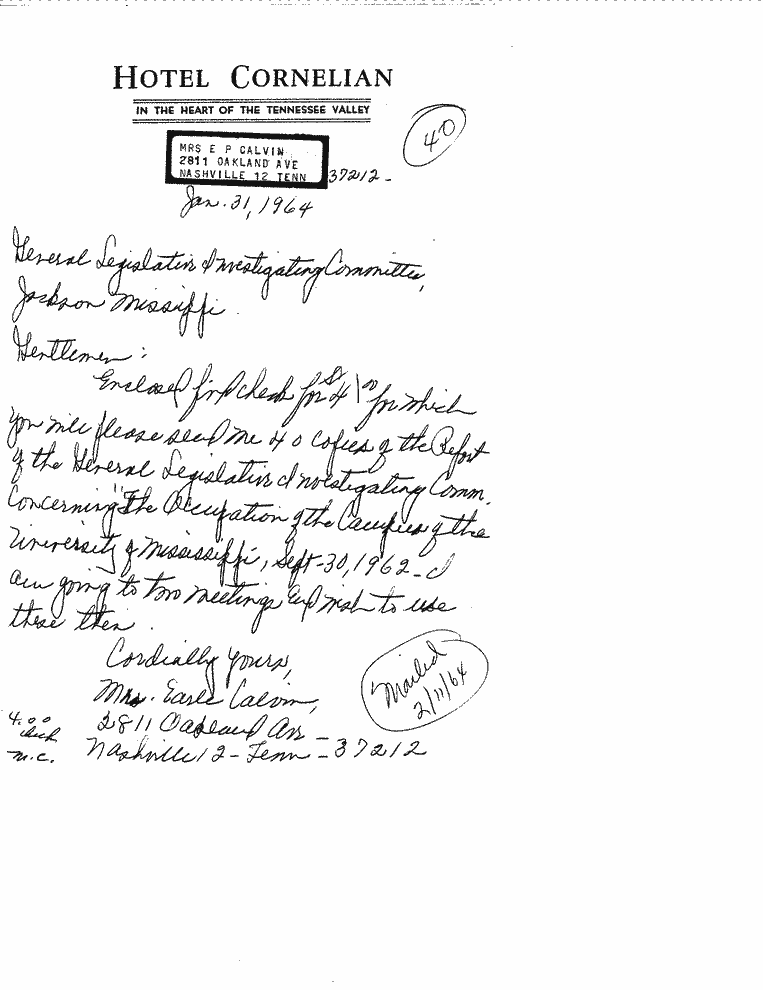 HOTEL CORNELIAN
IN THE HEART OF THE TENNESSEE VALLEY
40
MRS E P CALVIN
2811 OAKLAND AVE
NASHVILLE 12 TENN 37212-
Jan. 31, 1964
General Legislative Investigating Committee,
Jackson Missiffi
Gentlemen:
Enclosed find check for $4.00 for which
you will please send me 40 copies of the Report
of the General Legislative Investigating Comm.
Concerning "The Occupation of the Campus of the
University of Mississiffi, Sept-30, 1962- I
am going to two meetings and wish to use
these then.
Cordially yours,
Mrs. Earle Calvin,
2811 Oakland Ave -
Nashville 12 - Tenn - 37212
Mailed
2/11/64
4.00
check
m.c.